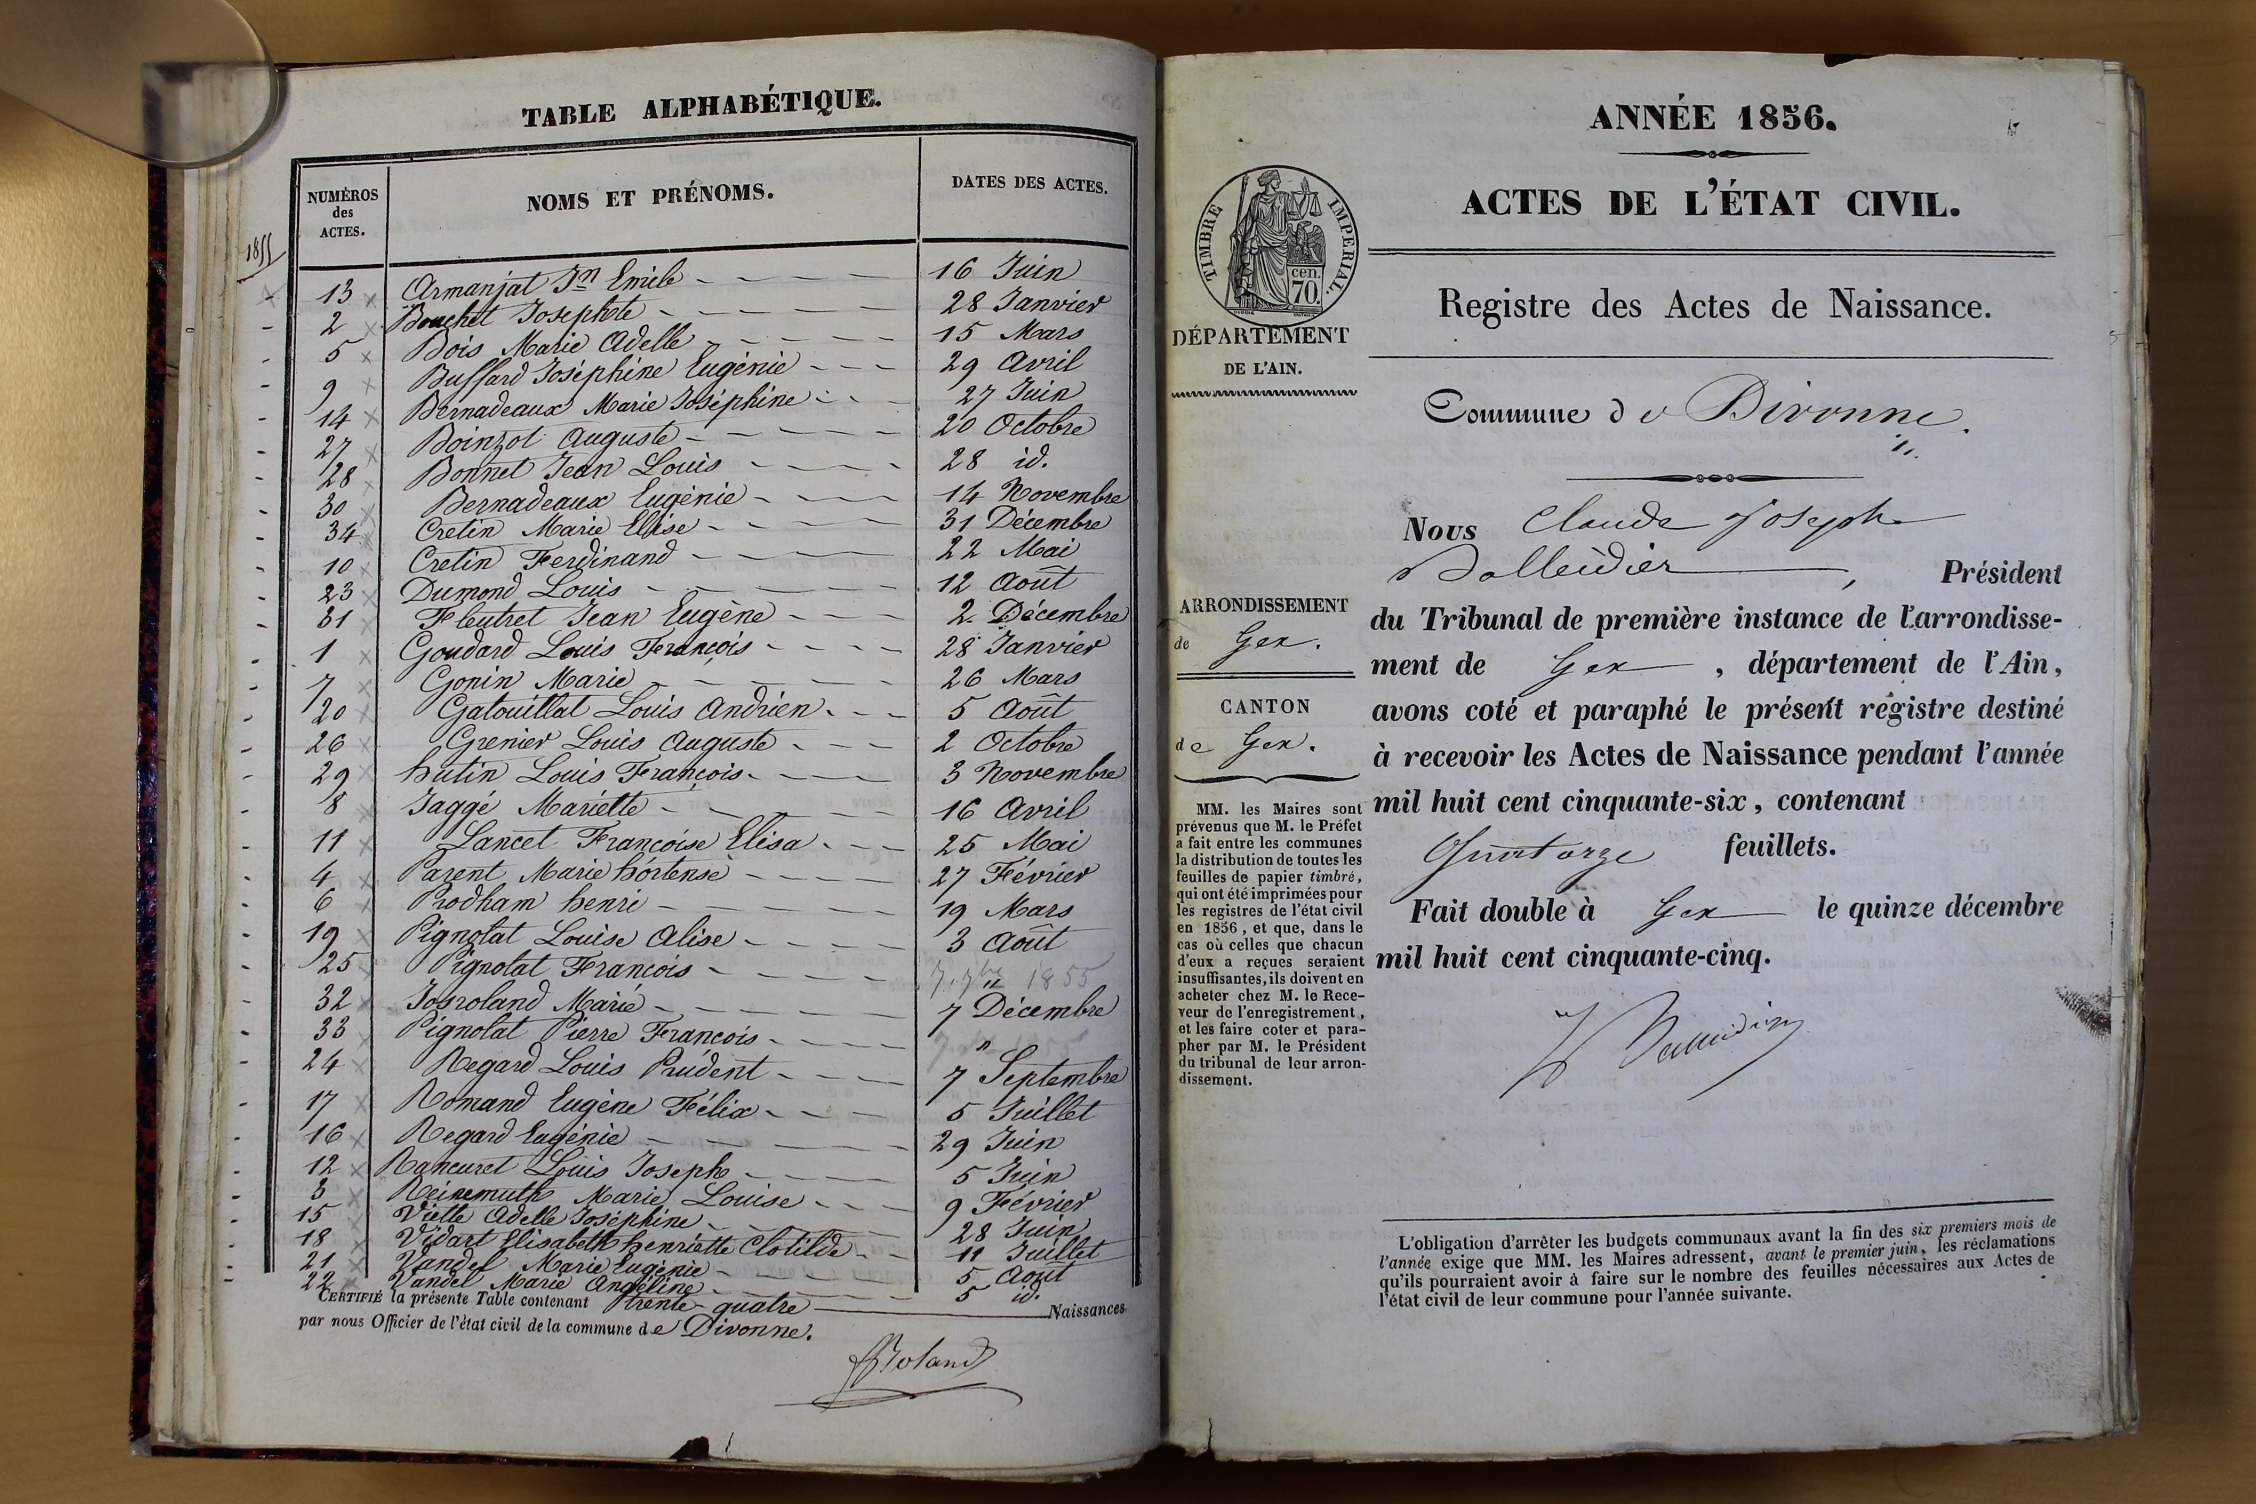 TABLE ALPHABÉTIQUE.
NUMÉROS des ACTES. NOMS ET PRÉNOMS. DATES DES ACTES.
1855
13 Armanjat Jn Emile 16 Juin
2 Bouchet Josephte 28 Janvier
5 Bois Marie Adelle 15 Mars
9 Buffard Joséphine Eugénie 29 Avril
14 Bernadeaux Marie Joséphine 27 Juin
27 Boinzot Auguste 20 Octobre
28 Bonnet Jean Louis 28 id.
30 Bernadeaux Eugénie 14 Novembre
34 Cretin Marie Elise 31 Décembre
10 Cretin Ferdinand 22 Mai
23 Dumond Louis 12 Août
31 Fleutret Jean Eugène 2 Décembre
1 Goudard Louis François 28 Janvier
7 Gonin Marie 26 Mars
20 Gatouillat Louis Andrien 5 Août
26 Grenier Louis Auguste 2 Octobre
29 hutin Louis François 3 Novembre
8 Jaggé Mariette 16 Avril
11 Lancet Françoise Elisa 25 Mai
4 Parent Marie hortense 27 Février
6 Prodham henri 19 Mars
19 Pignolat Louise Alise 3 Août
25 Pignolat François 7. 7bre 1855
32 Josroland Marie 7 Décembre
33 Pignolat Pierre François "
24 Regard Louis Prudent 7 Septembre
17 Romand Eugène Félix 5 Juillet
16 Regard Eugénie 29 Juin
12 Rancuret Louis Joseph 5 Juin
3 Reinemuth Marie Louise 9 Février
15 Viette Adelle Joséphine 28 Juin
18 Vidart Elisabeth henriette Clotilde 11 Juillet
21 Vandel Marie Eugénie 5 Août
22 Vandel Marie Angéline 5 id.
CERTIFIÉ la présente Table contenant trente-quatre Naissances
par nous Officier de l'état civil de la commune de Divonne.
Roland
ANNÉE 1856.
ACTES DE L'ÉTAT CIVIL.
TIMBRE IMPERIAL.
cen.
70.
Registre des Actes de Naissance.
DÉPARTEMENT
DE L'AIN.
Commune de Divonne.
Nous Claude Joseph
Balleidier, Président
du Tribunal de première instance de l'arrondisse-
ment de Gex, département de l'Ain,
avons coté et paraphé le présent registre destiné
à recevoir les Actes de Naissance pendant l'année
mil huit cent cinquante-six, contenant
feuillets.
Fait double à Gex le quinze décembre
mil huit cent cinquante-cinq.
ARRONDISSEMENT
de Gex.
CANTON
de Gex.
MM. les Maires sont
prévenus que M. le Préfet
a fait entre les communes
la distribution de toutes les
feuilles de papier timbré,
qui ont été imprimées pour
les registres de l'état civil
en 1856, et que, dans le
cas où celles que chacun
d'eux a reçues seraient
insuffisantes, ils doivent en
acheter chez M. le Rece-
veur de l'enregistrement,
et les faire coter et para-
pher par M. le Président
du tribunal de leur arron-
dissement.
L'obligation d'arrêter les budgets communaux avant la fin des six premiers mois de
l'année exige que MM. les Maires adressent, avant le premier juin, les réclamations
qu'ils pourraient avoir à faire sur le nombre des feuilles nécessaires aux Actes de
l'état civil de leur commune pour l'année suivante.